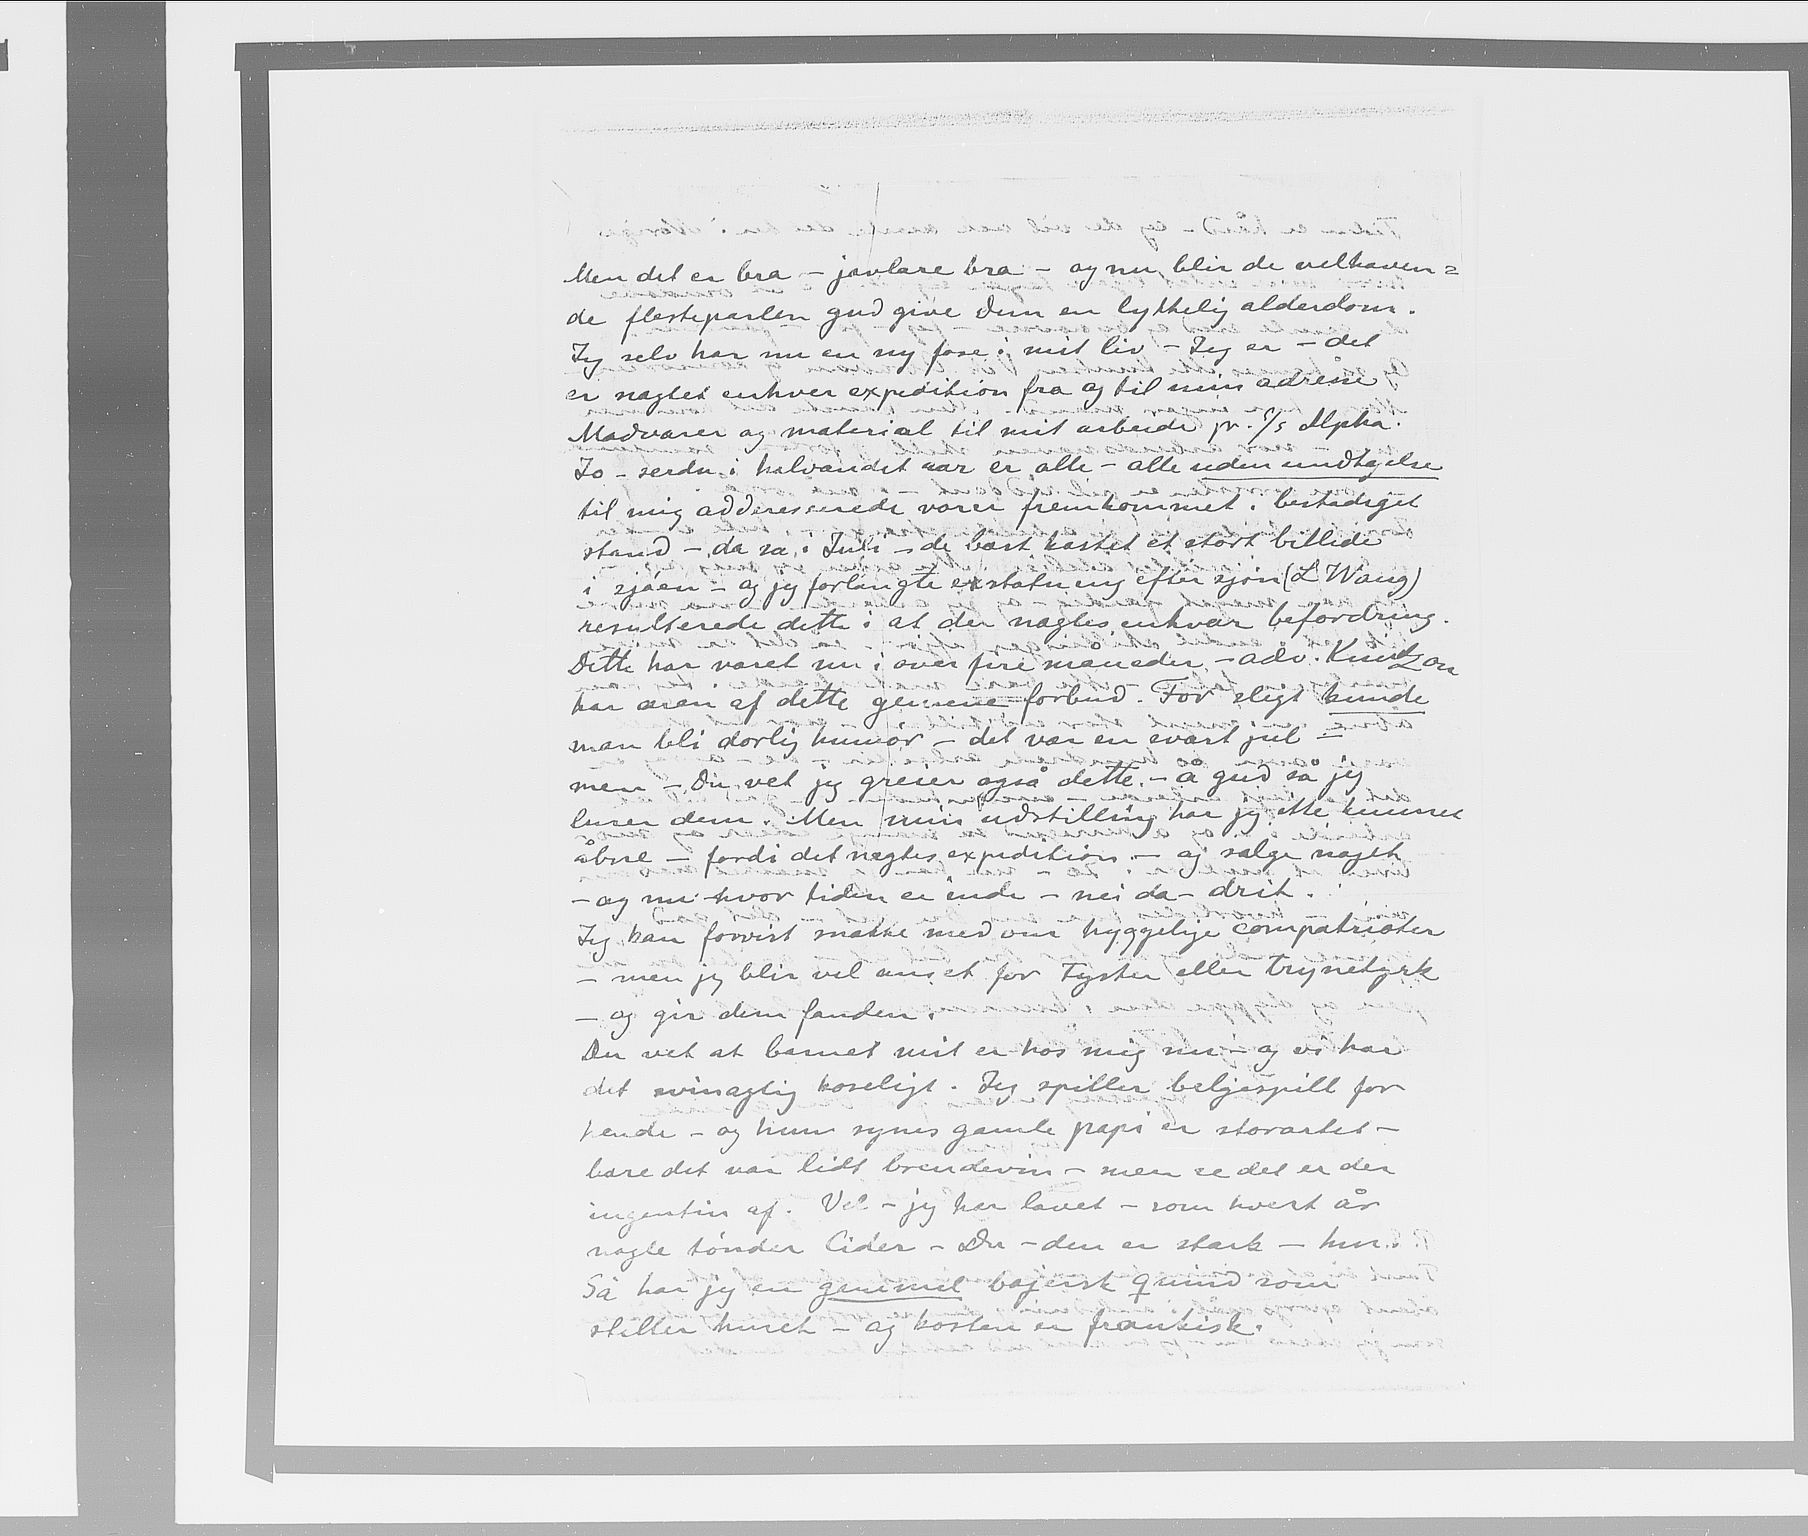 Men det er bra – javlare bra – og nu blir de velhaven=
de flesteparten gud give dem en lykkelig alderdom.
Jeg selv har nu en ny fase i mit liv – Jeg er – det
er nagtet enhver expedition fra og til min adresse
Madvarer og material til mit arbeide pr. %s Alpha.
Jo – serdu i halvandet aar er alle – alle uden undtagelse
til mig adderesserede varer fremkommet i beskadiget
stand – da sa i Juli – de bast kastet et stort billede
i sjøen – og jeg forlangte erstatning efter sjøn (L Wang)
resulterede dette i at der nagtes enhvar befordring.
Dette har varet nu i over fire måneder – adv. Knutzon
har æren af dette gemene forbud. For sligt kunde
man bli dorlig humør – det var en svart jul –
men – Du vet jeg greier også dette. – å gud så jeg
luser dem. Men min udstilling har jeg ikke kunnet
åbne – fordi det nægtes expedition – og salge noget
– og nu hvor tiden er inde – nei da – drit.
Jeg kan forvist snakke med vore hyggelige compatrioter
– men jeg blir vel anset for Tysker eller trynetyrk
– og gir dem fanden.
Du vet at barnet mit er hos mig nu – og vi har
det svinagtig koseligt. Jeg spiller belgespill for
hende – og hun synes gamle papi er storartet –
bare det var lidt brendevin – men se det er der
ingentin af. Vel – jeg har lavet – som hvert år
nogle tønder Cider – Du – den er stark – hm.
Så har jeg en gammel bajersk quind som
stiller huset – og kosten er frankisk.